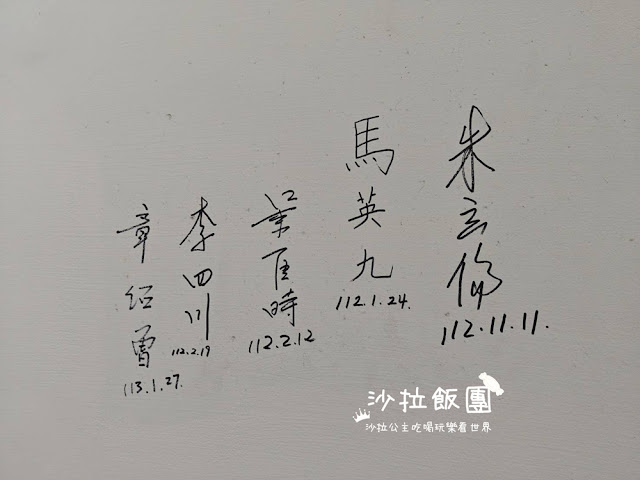 朱立倫
112.11.11.
馬英九
112.1.24.
葉匡時
112.2.12
李四川
112.2.19
章紹曾
113.1.27.
沙拉飯團
沙拉公主吃喝玩樂看世界